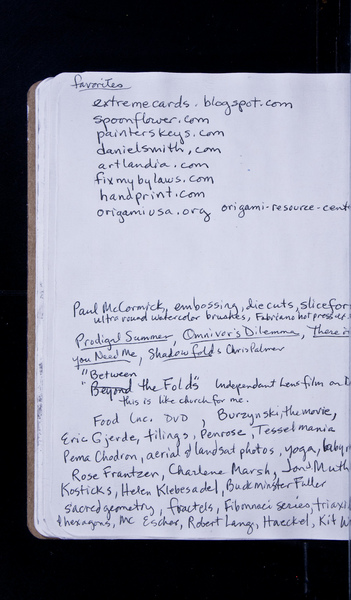 favorites
extremecards.blogspot.com
spoonflower.com
painterskeys.com
danielsmith.com
artlandia.com
fixmybylaws.com
handprint.com
origamiusa.org origami-resource-cent
Paul McCormick, embossing, die cuts, slicefor
ultra round watercolor brushes, Fabriano hot press
Prodigal Summer, Omnivor's Dilemma, There is
you Need Me, Shadowfolds Chris Palmer
"Between
"Beyond the Folds" Independent Lens film on D
this is like church for me.
Food Inc. DVD, Burzynski, the movie,
Eric Gjerde, tilings, Penrose, Tesselmania
Pema Chodron, aerial & landsat photos, yoga, labyr
Rose Frantzen, Charlene Marsh, Jon Muth
Kosticks, Helen Klebesadel, Buckminster Fuller
sacred geometry, fractels, Fibonnaci series, triaxi
& hexagons, MC Escher, Robert Lang, Haeckel, Kit W